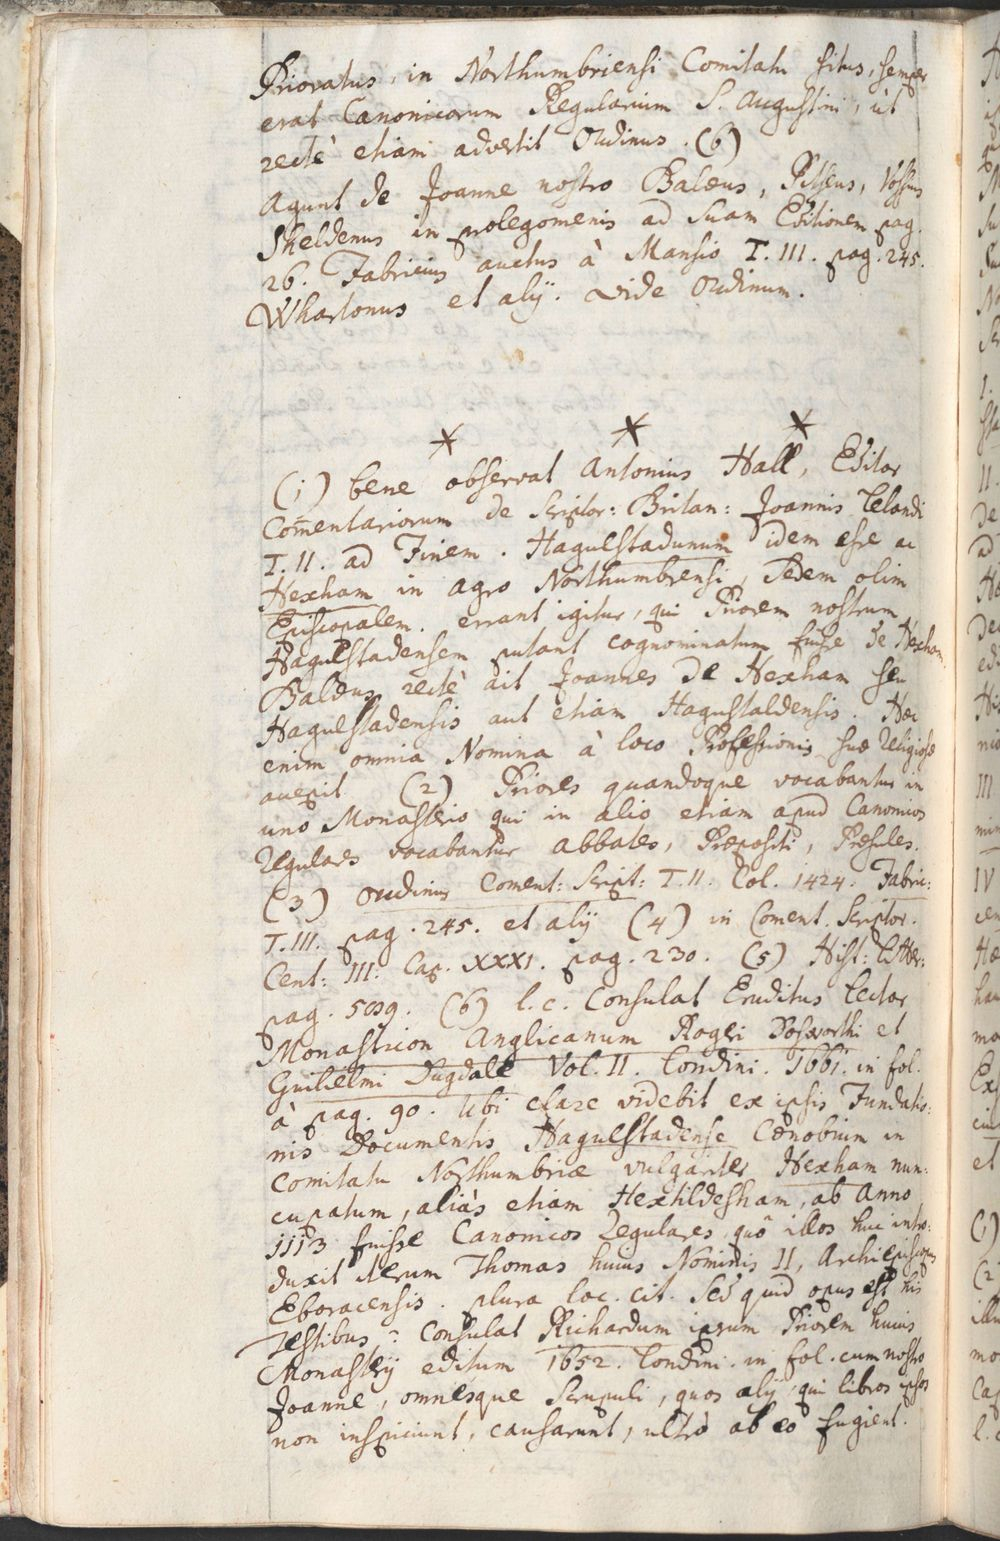 Prioratus, in Northumbriensi Comitatu situs, semper
erat Canonicorum Regularium S. Augustini, ut
rectè etiam advertit Oudinus. (6)
Agunt de Joanne nostro Balæus, Pitseus, Vossius
Sheldenus in prolegomenis ad suam Editionem pag.
26. Fabricius auctus à Mansio T. III. pag. 245.
Whartonus et alij. vide Oudinum.
* * *
(1) bene observat Antonius Hall, Editor
Com̃entariorum de Scriptor: Britan: Joannis Lelandi
T. II. ad Finem. Hagulstadunum idem esse ac
Hexham in agro Northumbrensi, Sedem olim
Episcopalem. errant igitur, qui Priorem nostrum
Hagulstadensem putant cognominatum fuisse de Hexham.
Balæus rectè ait Joannes de Hexham seu
Hagulstadensis aut etiam Hagustaldensis. Hæc
enim omnia Nomina à loco Professionis suæ Religiosæ
accepit. (2) Priores quandoque vocabantur in
uno Monasterio qui in alio etiam apud Canonicos
Regulares vocabantur Abbates, Præpositi, Præsules.
(3) Oudinus Coment: Script: T. II. Col. 1424. Fabric:
T. III. pag. 245. et alij (4) in Coment. Scriptor.
Cent: III: Cap. XXXI. pag. 230. (5) Hist: Litter:
pag. 509. (6) l. c. Consulat Eruditus Lector
Monasticon Anglicanum Rogeri Dodsworthi et
Guilielmi Dugdale Vol. II. Londini. 1661. in fol.
à pag. 90. Ubi clare videbit ex ipsis Fundatio:
nis Documentis Hagulstadense Cœnobium in
Comitatu Northumbriæ vulgariter Hexham nun:
cupatum, aliàs etiam Hextildesham, ab Anno
1113 fuisse Canonicos Regulares, quô illos huc intro:
duxit Thomas huius Nominis II, Archiepiscopus
Eboracensis. plura loc. cit. Sed quid opus est his
Testibus? Consulat Richardum ipsum Priorem huius
Monasterij editum 1652. Londini. in fol. cum nostro
Joanne, omnesque Scrupuli, quos alij, qui libros ipsos
non inspiciunt, causarunt, ultrò ab eo fugient.